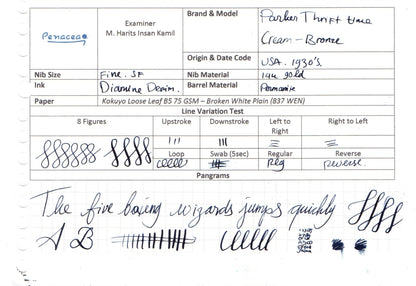 Penacea
Examiner
M. Harits Insan Kamil
Brand & Model
Parker Thrift time
Cream - Bronze
Origin & Date Code
USA. 1930's.
Nib Size
Fine. SF
Nib Material
14k gold
Ink
Diamine Denim.
Barrel Material
Permanite
Paper
Kokuyo Loose Leaf B5 75 GSM – Broken White Plain (837 WEN)
Line Variation Test
8 Figures
Upstroke
Downstroke
Left to Right
Right to Left
Loop
Swab (5sec)
Regular
Reverse
Reg
Reverse.
Pangrams
The five boxing wizards jumps quickly
A B